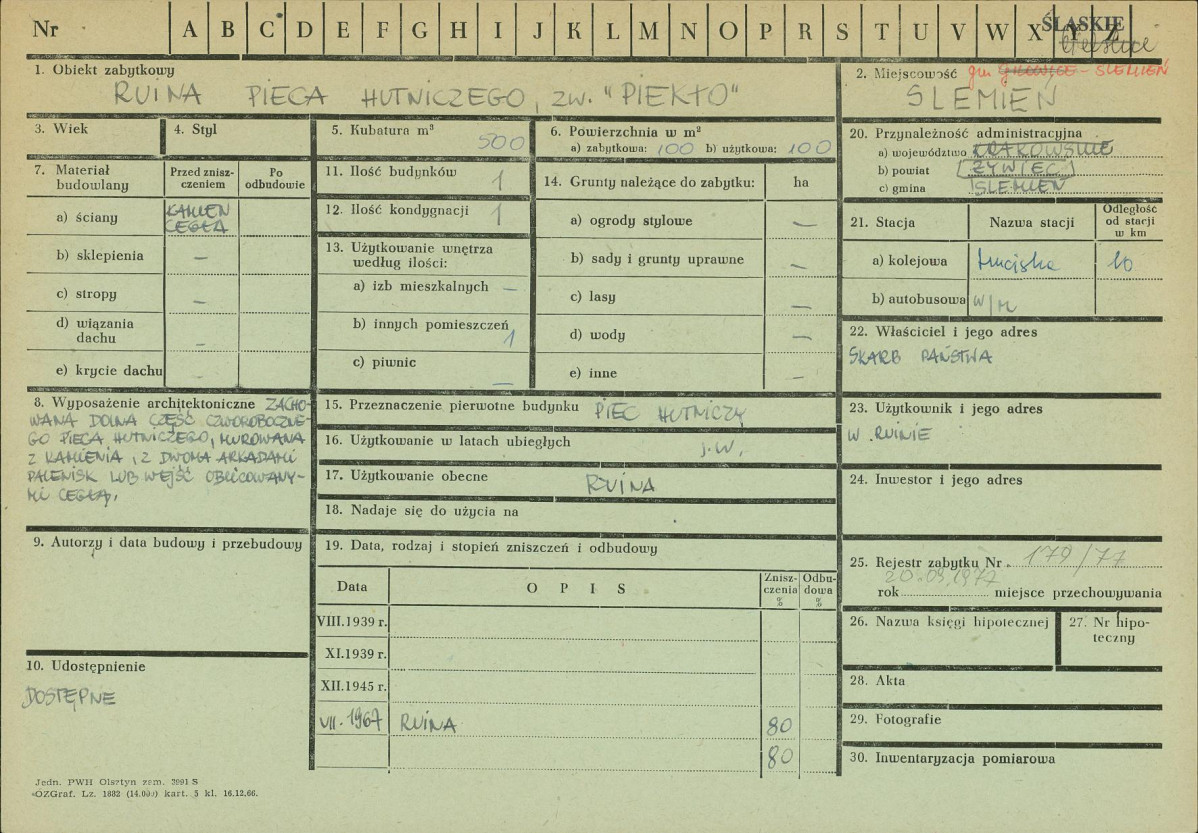 Nr A B C D E F G H I J K L M N O P R S T U V W X Y Z
ŚLĄSKIE
1. Obiekt zabytkowy
RUINA PIECA HUTNICZEGO, ZW. "PIEKŁO"
2. Miejscowość gm. GILOWICE - ŚLEMIEŃ
ŚLEMIEŃ
3. Wiek
4. Styl
5. Kubatura m³
500
6. Powierzchnia w m²
a) zabytkowa: 100 b) użytkowa: 100
7. Materiał budowlany
Przed zniszczeniem
Po odbudowie
a) ściany KAMIEŃ CEGŁA
b) sklepienia —
c) stropy —
d) wiązania dachu —
e) krycie dachu —
11. Ilość budynków 1
12. Ilość kondygnacji 1
13. Użytkowanie wnętrza według ilości:
a) izb mieszkalnych —
b) innych pomieszczeń 1
c) piwnic —
14. Grunty należące do zabytku: ha
a) ogrody stylowe —
b) sady i grunty uprawne —
c) lasy —
d) wody —
e) inne —
20. Przynależność administracyjna
a) województwo KRAKOWSKIE
b) powiat ŻYWIEC
c) gmina ŚLEMIEŃ
21. Stacja
Nazwa stacji
Odległość od stacji w km
a) kolejowa Hucisko 10
b) autobusowa w/m
22. Właściciel i jego adres
SKARB PAŃSTWA
8. Wyposażenie architektoniczne ZACHO-
WANA DOLNA CZĘŚĆ CZWOROBOCZNE-
GO PIECA HUTNICZEGO, MUROWANA
Z KAMIENIA, Z DWOMA ARKADAMI
PALENISK LUB WEJŚĆ OBLICOWANY-
MI CEGŁĄ.
15. Przeznaczenie pierwotne budynku PIEC HUTNICZY
16. Użytkowanie w latach ubiegłych j.w.
17. Użytkowanie obecne RUINA
18. Nadaje się do użycia na
23. Użytkownik i jego adres
W RUINIE
24. Inwestor i jego adres
9. Autorzy i data budowy i przebudowy
19. Data, rodzaj i stopień zniszczeń i odbudowy
Data
O P I S
Zniszczenia %
Odbudowa %
VIII.1939 r.
XI.1939 r.
XII.1945 r.
VII.1967 RUINA 80
80
25. Rejestr zabytku Nr 179/77
20.09.1977
rok miejsce przechowywania
26. Nazwa księgi hipotecznej
27. Nr hipoteczny
28. Akta
29. Fotografie
30. Inwentaryzacja pomiarowa
10. Udostępnienie
DOSTĘPNE
Jedn. PWH Olsztyn zam. 3991 S
OZGraf. Lz. 1882 (14.000) kart. 5 kl. 16.12.66.